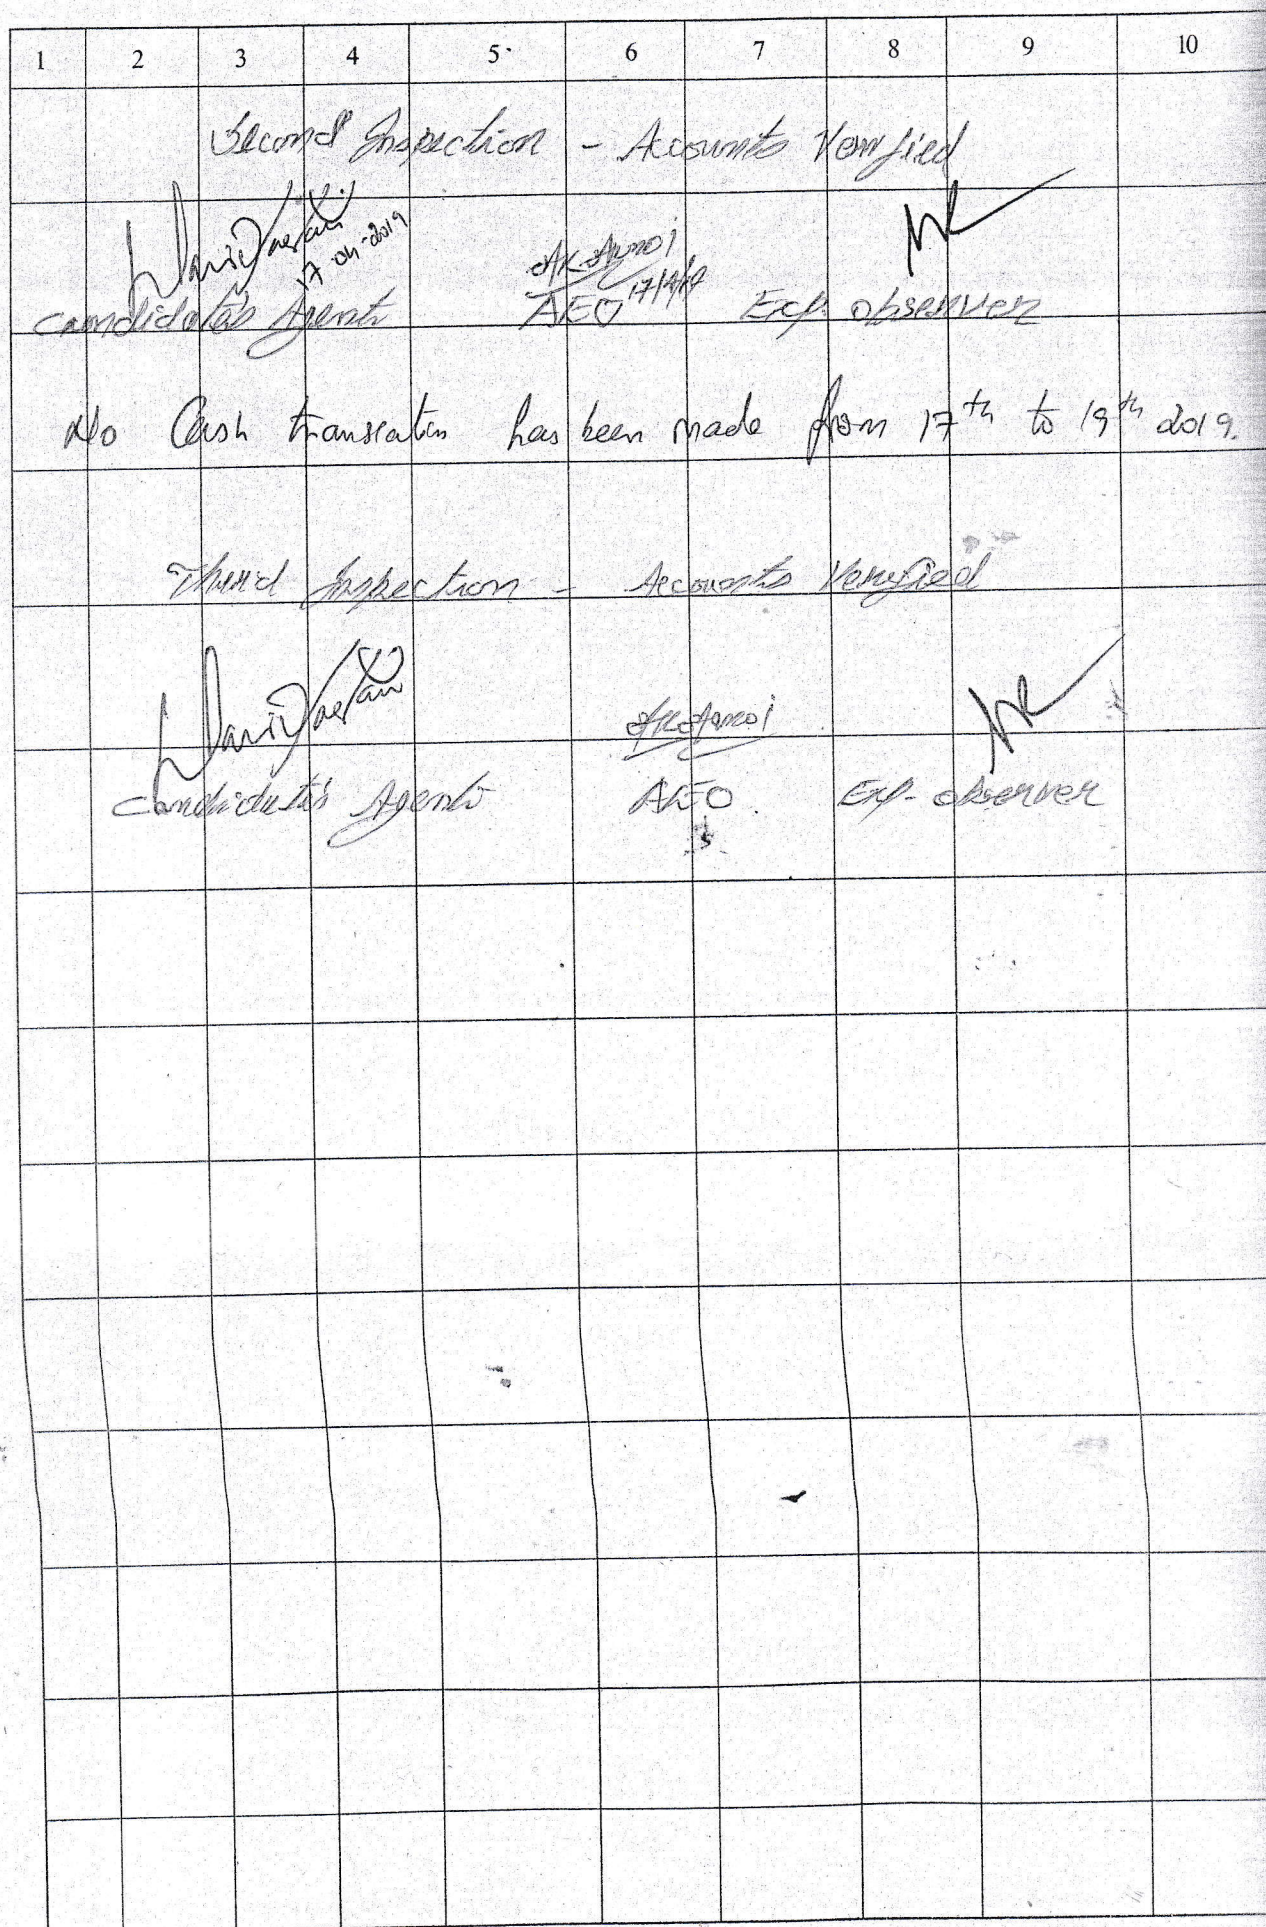 1 2 3 4 5 6 7 8 9 10
Second Inspection - Accounts Verified
17-04-2019
17/4/19
Candidate's Agent AEO Exp. observer
No Cash transcation has been made from 17th to 19th 2019.
Third Inspection - Accounts Verified
Candidate's Agent AEO Exp. observer